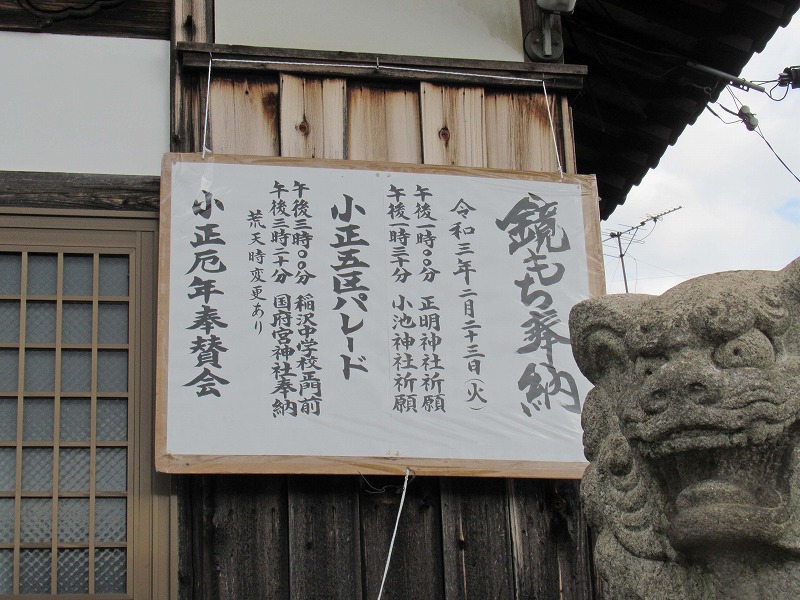 鏡もち奉納
令和三年二月二十三日(火)
午後一時〇〇分 正明神社祈願
午後一時三十分 小池神社祈願
小正五区パレード
午後三時〇〇分 稲沢中学校正門前
午後三時二十分 国府宮神社奉納
荒天時変更あり
小正厄年奉賛会